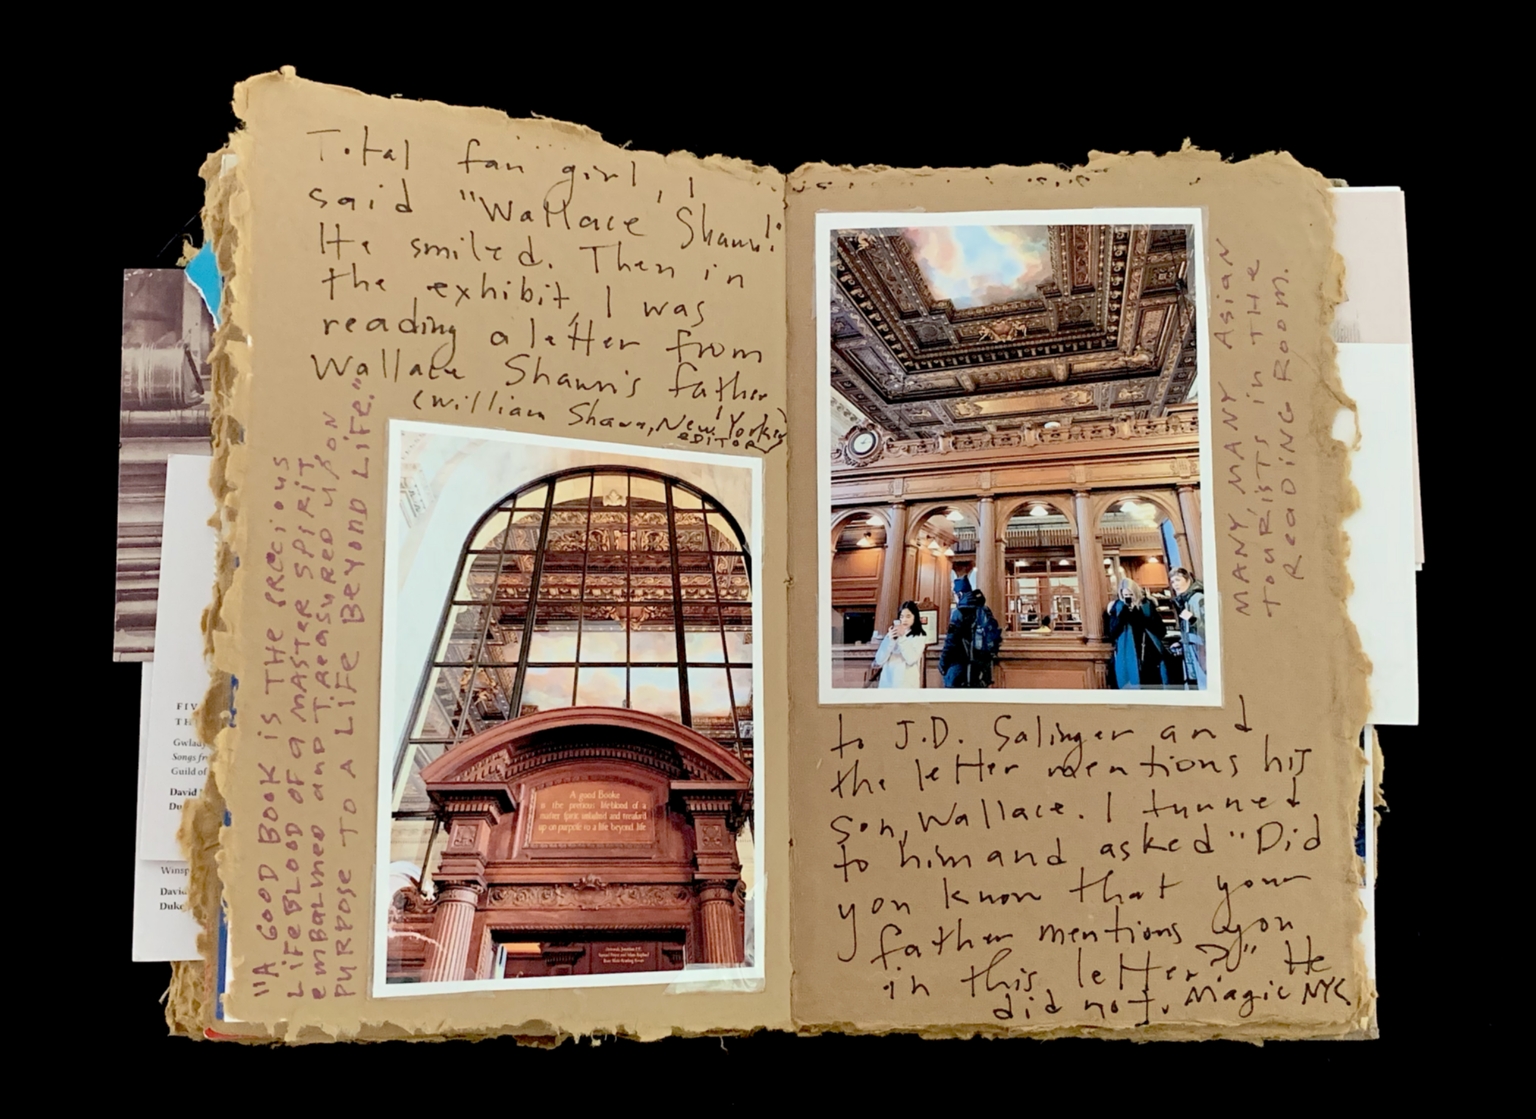 Total fan girl, I
said "Wallace Shawn!"
He smiled. Then in
the exhibit, I was
reading a letter from
Wallace Shawn's father
(William Shawn, New Yorker
EDITOR)
"A GOOD BOOK IS THE PRECIOUS
LIFEBLOOD OF A MASTER SPIRIT
EMBALMED AND TREASURED UP ON
PURPOSE TO A LIFE BEYOND LIFE."
A good Booke
is the precious lifeblood of a
master spirit imbalmd and treasurd
up on purpose to a life beyond life
FIV
TH
Gwlady
Songs fr
Guild of
David
Du
Winsp
David
Duke
MANY MANY ASIAN
TOURISTS in THE
READING ROOM.
to J.D. Salinger and
the letter mentions his
son, Wallace. I turned
to him and asked "Did
you know that your
father mentions you
in this letter?" He
did not. Magic NYC